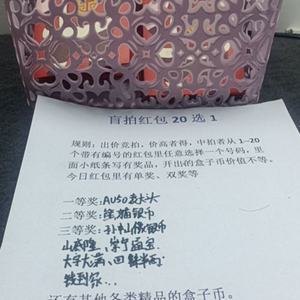 盲拍红包 20 选 1
规则：出价竞拍，价高者得，中拍者从 1–20
个带有编号的红包里任意选择一个号码，里
面小纸条写有奖品，开出的盒子币价值不等。
今日红包里有单奖、双奖等
一等奖：AU50麦大头
二等奖：熊猫银币
三等奖：孙中山像银币
大字大满、四
还有其他各类精品的盒子币。